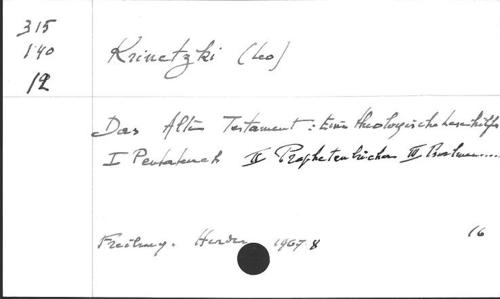 315
140
12
Krinetzki (Leo)
Das Alte Testament : Eine theologische Lesehilfe
I Pentateuch II Prophetenbücher III Psalmen.....
Freiburg. Herder 1967 8
16